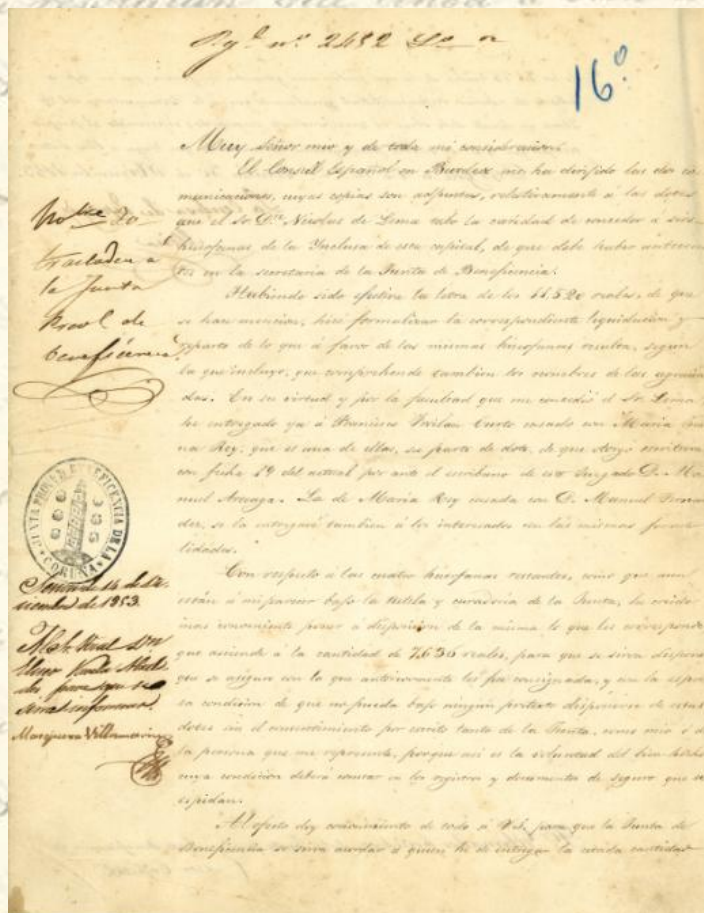 nº 2432
16º
Muy Señor mio y de toda mi consideracion.
El Consul Español en Burdeos me ha dirijido las dos co-
municaciones, cuyas copias son adjuntas, relativamente á las dotes
que el Sr. Dn. Nicolas de Lema tubo la caridad de conceder á seis
huerfanas de la Ynclusa de esta capital, de que debe haber antece-
tes en la secretaria de la Junta de Beneficencia.
Habiendo sido efectiva la letra de los 11,520 reales, de que
se hace mencion, hice formalizar la correspondiente liquidacion y
reparto de lo que á favor de las mismas huerfanas resulta, segun
la que incluyo, que comprehende tambien los nombres de las agracia-
das. En su virtud y por la facultad que me concedió el Sr. Lema,
he entregado ya á Francisco Curto casado con Maria
na Rey, que es una de ellas, su parte de dote, de que otorgó escritura
con fecha 19 del actual por ante el escribano de este Juzgado D. Ma-
nuel Arteaga. La de Maria Rey casada con D. Manuel
dez, se la entregaré tambien á los interesados con las mismas forma-
lidades.
Con respecto á las cuatro huerfanas restantes, como que aun
están á mi parecer bajo la tutela y curaduria de la Junta, he creido
mas conveniente poner á disposicion de la misma lo que les corresponde
que asciende á la cantidad de 7,630 reales, para que se sirva disponer
que se asegure con la que anteriormente les fue consignada, y con la espre-
sa condicion de que no pueda bajo ningun pretexto disponerse de estas
dotes sin el consentimiento por escrito tanto de la Junta, como mio ó de
la persona que me represente, porque asi es la voluntad del bien hechor
cuya condicion deberá constar en los registros y documentos de seguro que se
espidan.
Al efecto doy conocimiento de todo á V.S. para que la Junta de
Beneficencia se sirva acordar á quien he de entregar la citada cantidad
trasladen á
la Junta
Proal de
beneficencia
JUNTA PROAL DE BENEFICENCIA DE LA CORUÑA
14 de Di-
ciembre de 1853.
para que se
Villamarin